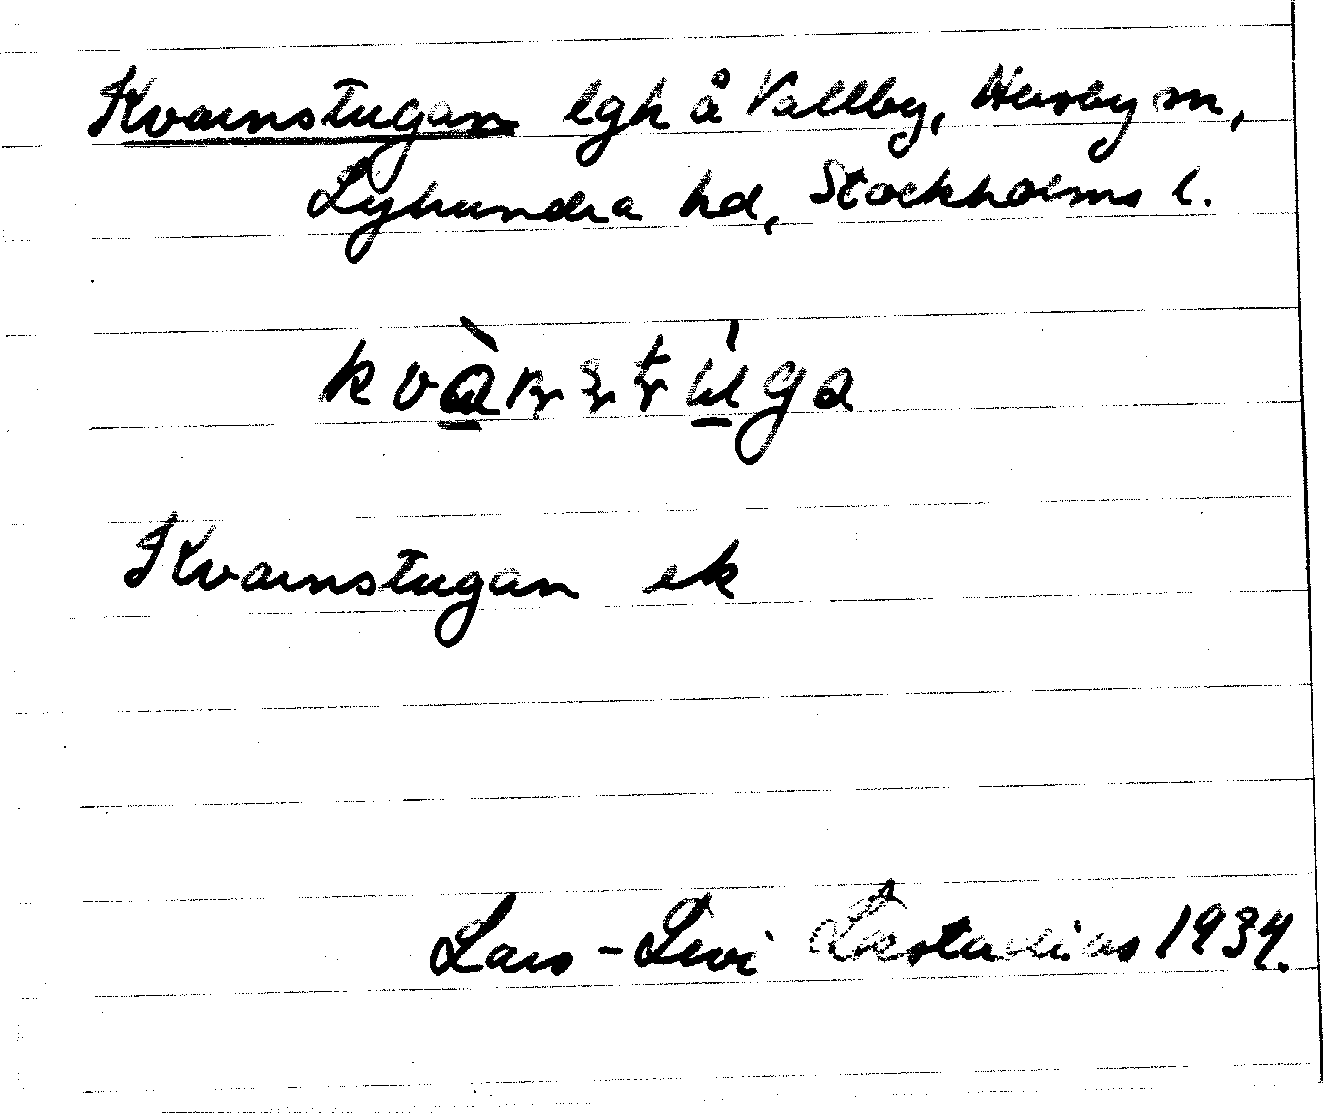 Kvarnstugan lgh å Vallby, Husby sn,
Lyhundra hd, Stockholms l.
Kvarnstugan ek
Lars-Levi Læstadius 1934.